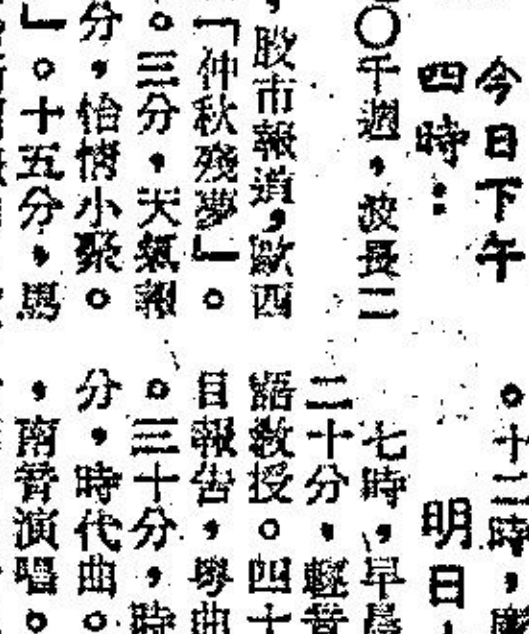 今日下午
四時：
〇千週，波長二
，股市報道，歐西
「仲秋殘夢」。
。三分，天氣報
分，怡情小聚。
」。十五分，馬
。十二時，
明日，
七時，早晨
二十分，輕音
語教授。四十
目報告，粵曲
。三十分，時
分，時代曲。
，南音演唱。